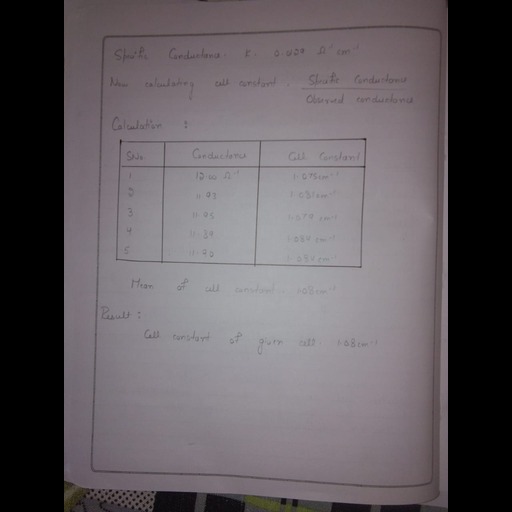 Specific Conductance. K. Ω⁻¹ cm⁻¹
Now calculating cell constant. Specific Conductance
Observed conductance
Calculation :
S.No. Conductance Cell Constant
1 12.00 Ω⁻¹ 1.075 cm⁻¹
2 11.93 1.081 cm⁻¹
3 11.95 1.079 cm⁻¹
4 11.89 1.084 cm⁻¹
5 11.90 cm⁻¹
Mean of cell constant. 1.08 cm⁻¹
Result :
Cell constant of given cell. 1.08 cm⁻¹